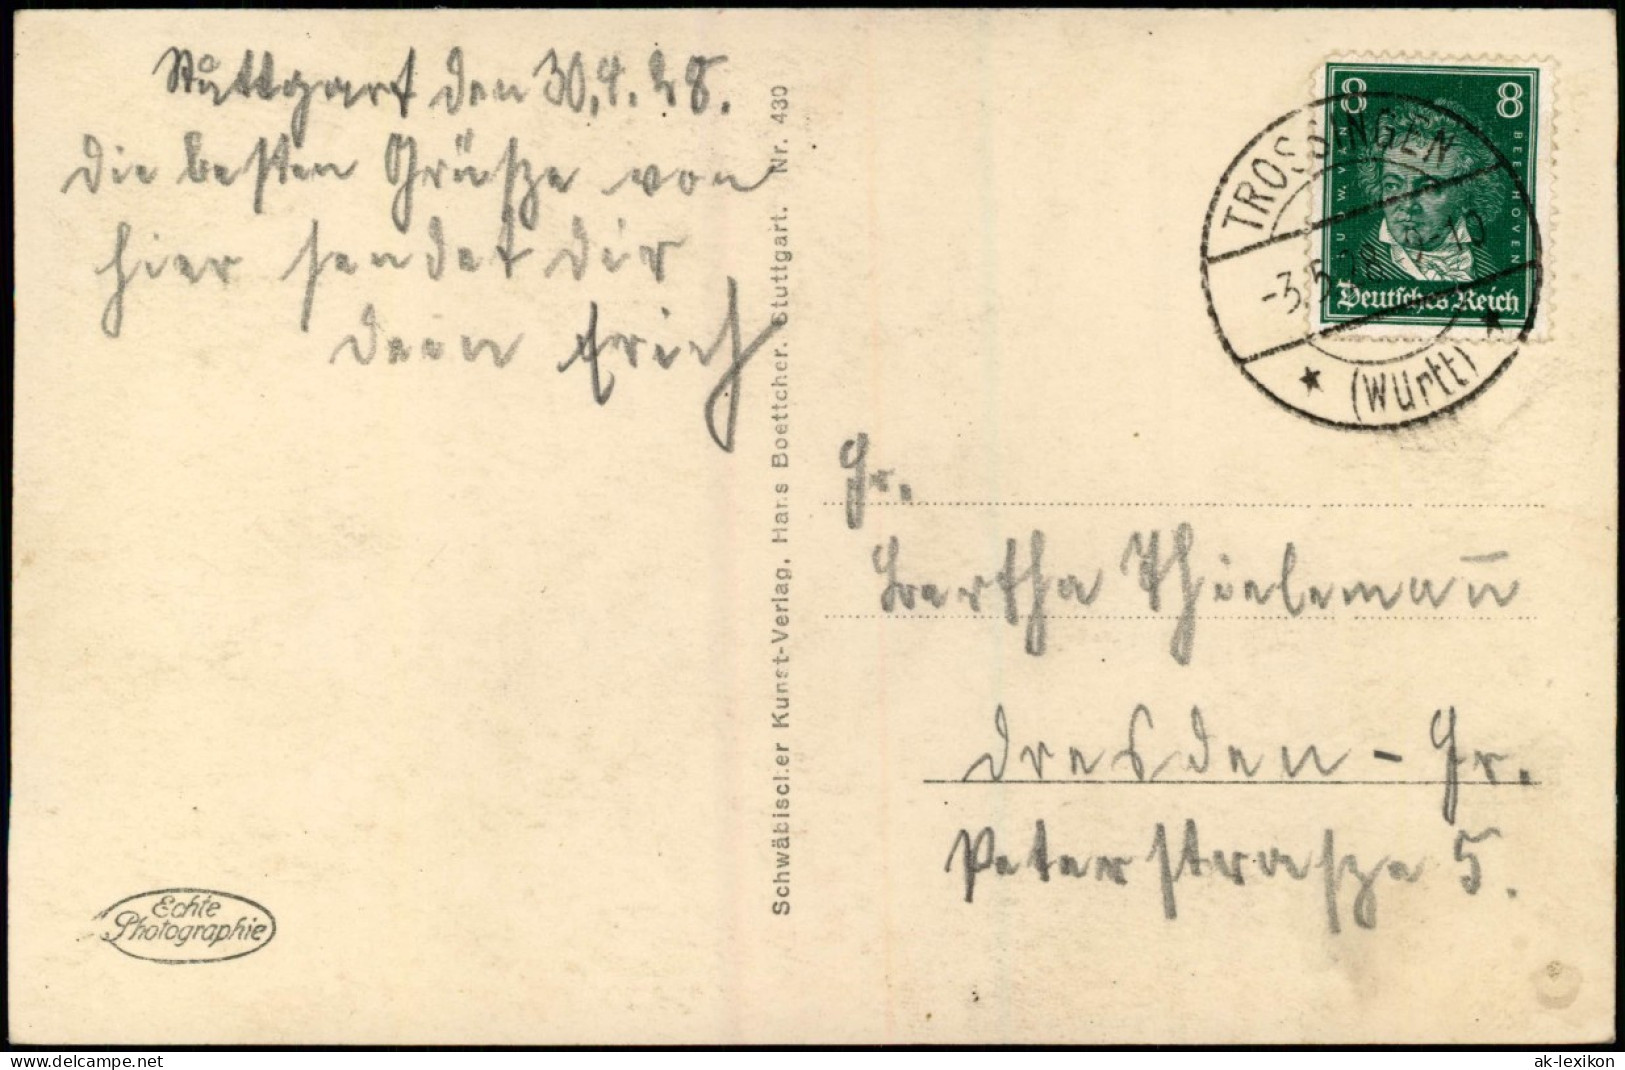 Stuttgart den 30.4.28.
Die besten Grüsze von
hier sendet dir
dein Erich
Schwäbischer Kunst-Verlag, Hans Boettcher, Stuttgart. Nr. 430
8 8
U. W. VAN BEETHOVEN
Deutsches Reich
TROSSINGEN
-3.5.28 9-10
★ (Württ) ★
Fr.
Bertha Thielemann
Dresden - Gr.
Peterstrasze 5.
Echte
Photographie
hippostcard.com
ak-lexikon